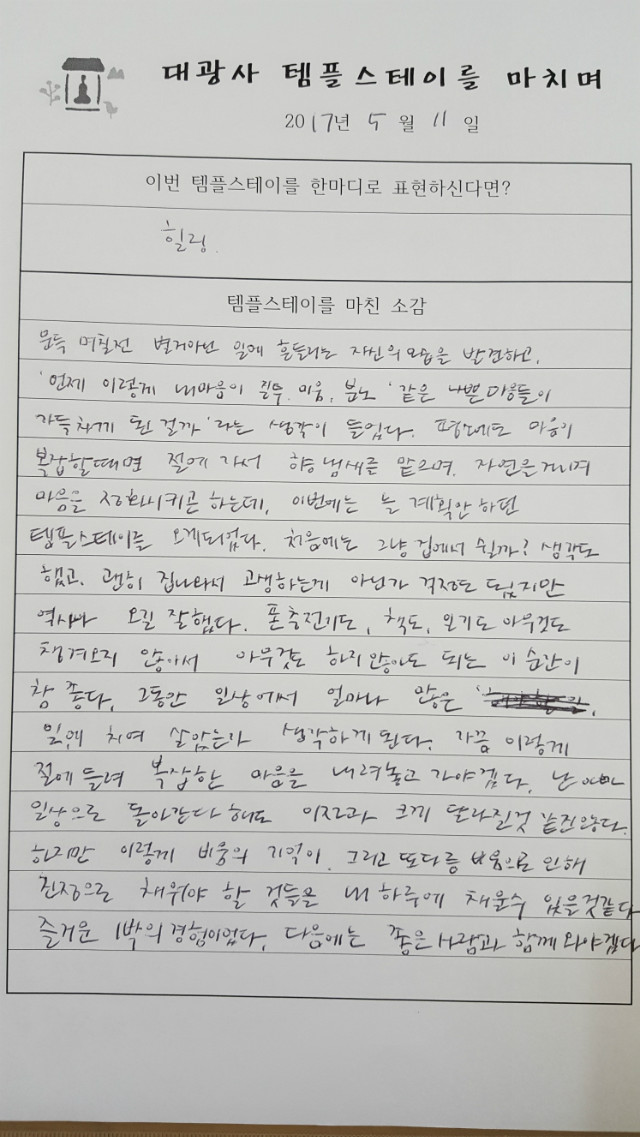 대광사 템플스테이를 마치며
2017년 5월 11일
이번 템플스테이를 한마디로 표현하신다면?
힐링.
템플스테이를 마친 소감
문득 며칠전 별거아닌 일에 흔들리는 자신의 모습을 발견하고,
'언제 이렇게 내마음이 질투, 미움, 분노' 같은 나쁜 마음들이
가득차게 된 걸까'라는 생각이 들었다. 평소에도 마음이
복잡할때면 절에 가서 향 냄새를 맡으며, 자연을 거니며
마음을 정화시키곤 하는데, 이번에는 늘 계획만 하던
템플스테이를 오게되었다. 처음에는 그냥 집에서 쉴까? 생각도
했고. 괜히 집나와서 고생하는게 아닌가 걱정도 됐지만
역시나 오길 잘했다. 폰충전기도, 책도, 온기도 아무것도
챙겨오지 않아서 아무것도 하지않아도 되는 이 순간이
참 좋다. 그동안 일상에서 얼마나 많은
일에 치여 살았는가 생각하게 된다. 가끔 이렇게
절에 들려 복잡한 마음을 내려놓고 가야겠다. 난
일상으로 돌아간다 해도 이전과 크게 달라질것 같진않다.
하지만 이렇게 비움의 기억이, 그리고 또다른 비움으로 인해
진정으로 채워야 할 것들을 내 하루에 채울수 있을것같다
즐거운 1박의 경험이었다. 다음에는 좋은 사람과 함께 와야겠다